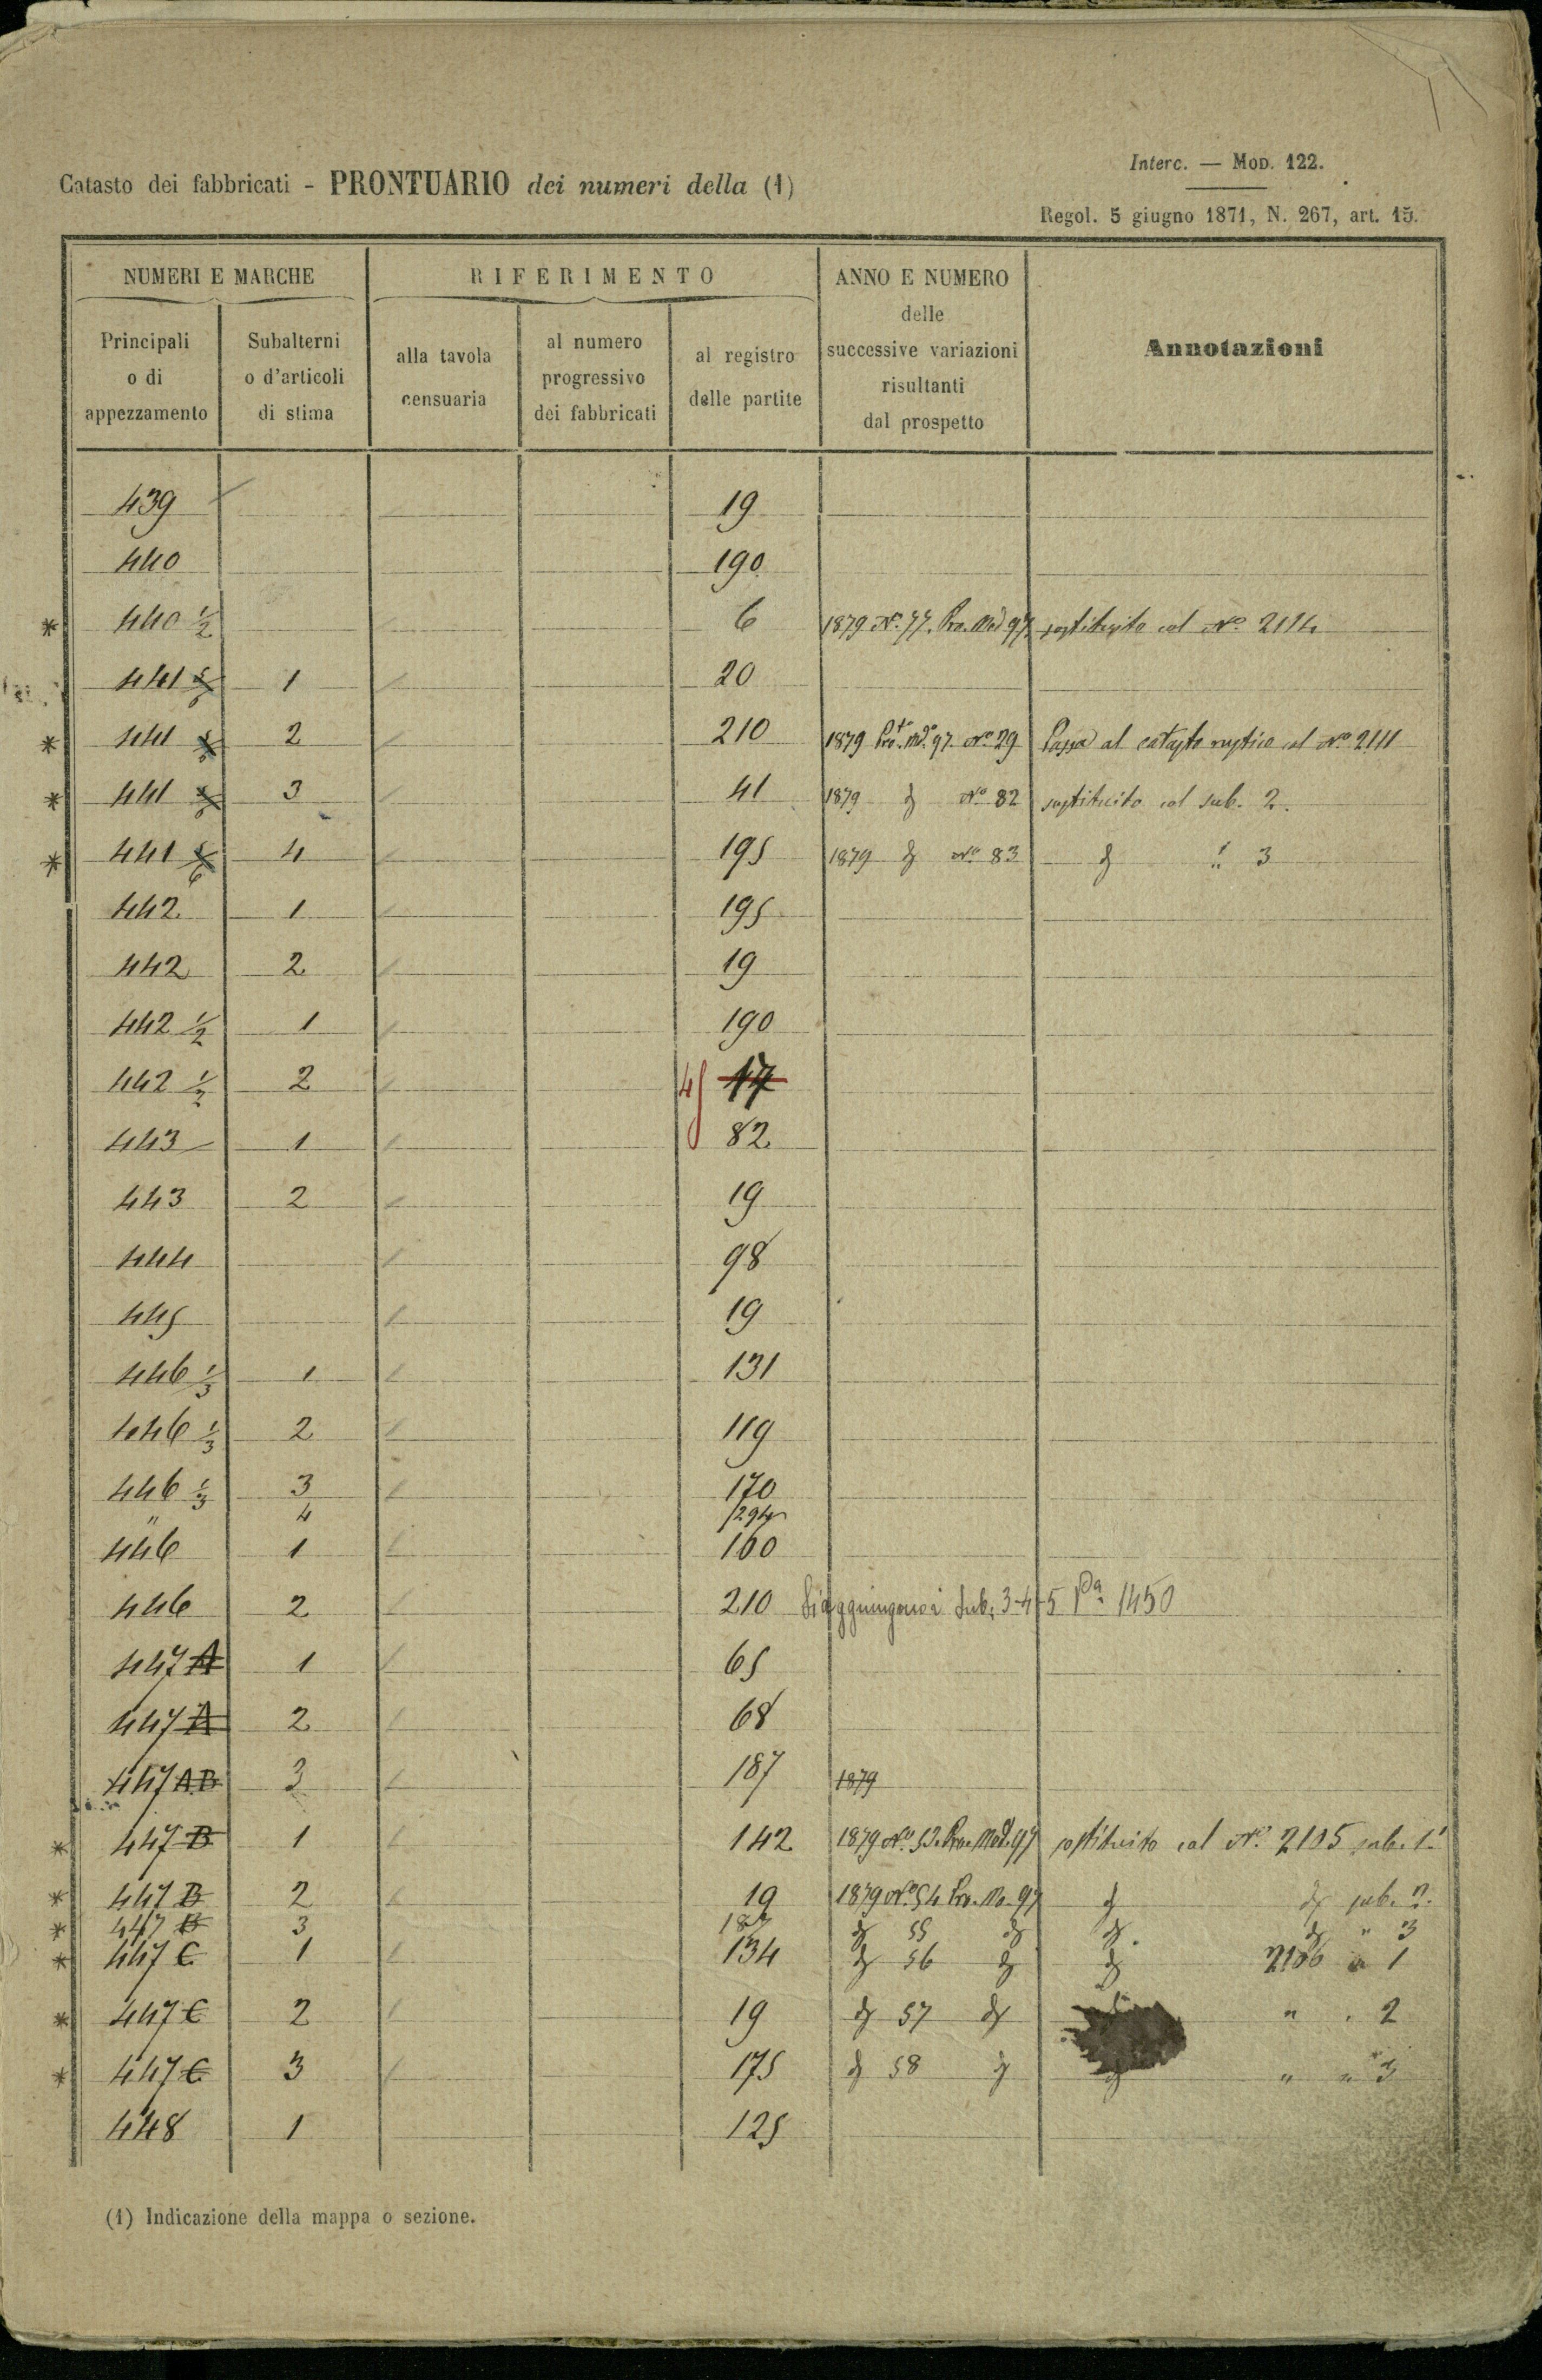 Interc. — Mod. 122.
Catasto dei fabbricati - PRONTUARIO dei numeri della (1)
Regol. 5 giugno 1871, N. 267, art. 15.
NUMERI E MARCHE RIFERIMENTO ANNO E NUMERO delle successive variazioni risultanti dal prospetto Annotazioni
Principali o di appezzamento Subalterni o d'articoli di stima alla tavola censuaria al numero progressivo dei fabbricati al registro delle partite
439 19
440 190
* 440 1/2 6 1879 Nº 77. Pro. Mod 97 sostituito col Nº 2114
441 1 20
* 441 2 210 1879 Pro. Mod. 97 Nº 29 Passa al catasto rustico col Nº 2111
* 441 3 41 1879 Nº 82 sostituito col sub. 2.
* 441 4 195 1879 Nº 83 " 3
442 1 195
442 2 19
442 1/2 1 190
442 1/2 2 45 17
443 1 82
443 2 19
444 98
445 19
446 1/3 1 131
446 1/3 2 119
446 1/3 3 170
" 4 294
446 1 160
446 2 210 Si aggiungono i Sub. 3-4-5 Pa 1450
447 A 1 65
447 A 2 68
447 AB 3 187 1879
* 447 B 1 142 1879 Nº 53. Pro. Mod. 97 sostituito col Nº 2105 sub. 1
* 447 B 2 19 1879 Nº 54 Pro. Mo. 97 sub. 2.
* 447 B 3 187 55 " 3
* 447 C 1 134 56 2106 " 1
* 447 C 2 19 57 " 2
* 447 C 3 175 58 " " 3
448 1 125
(1) Indicazione della mappa o sezione.